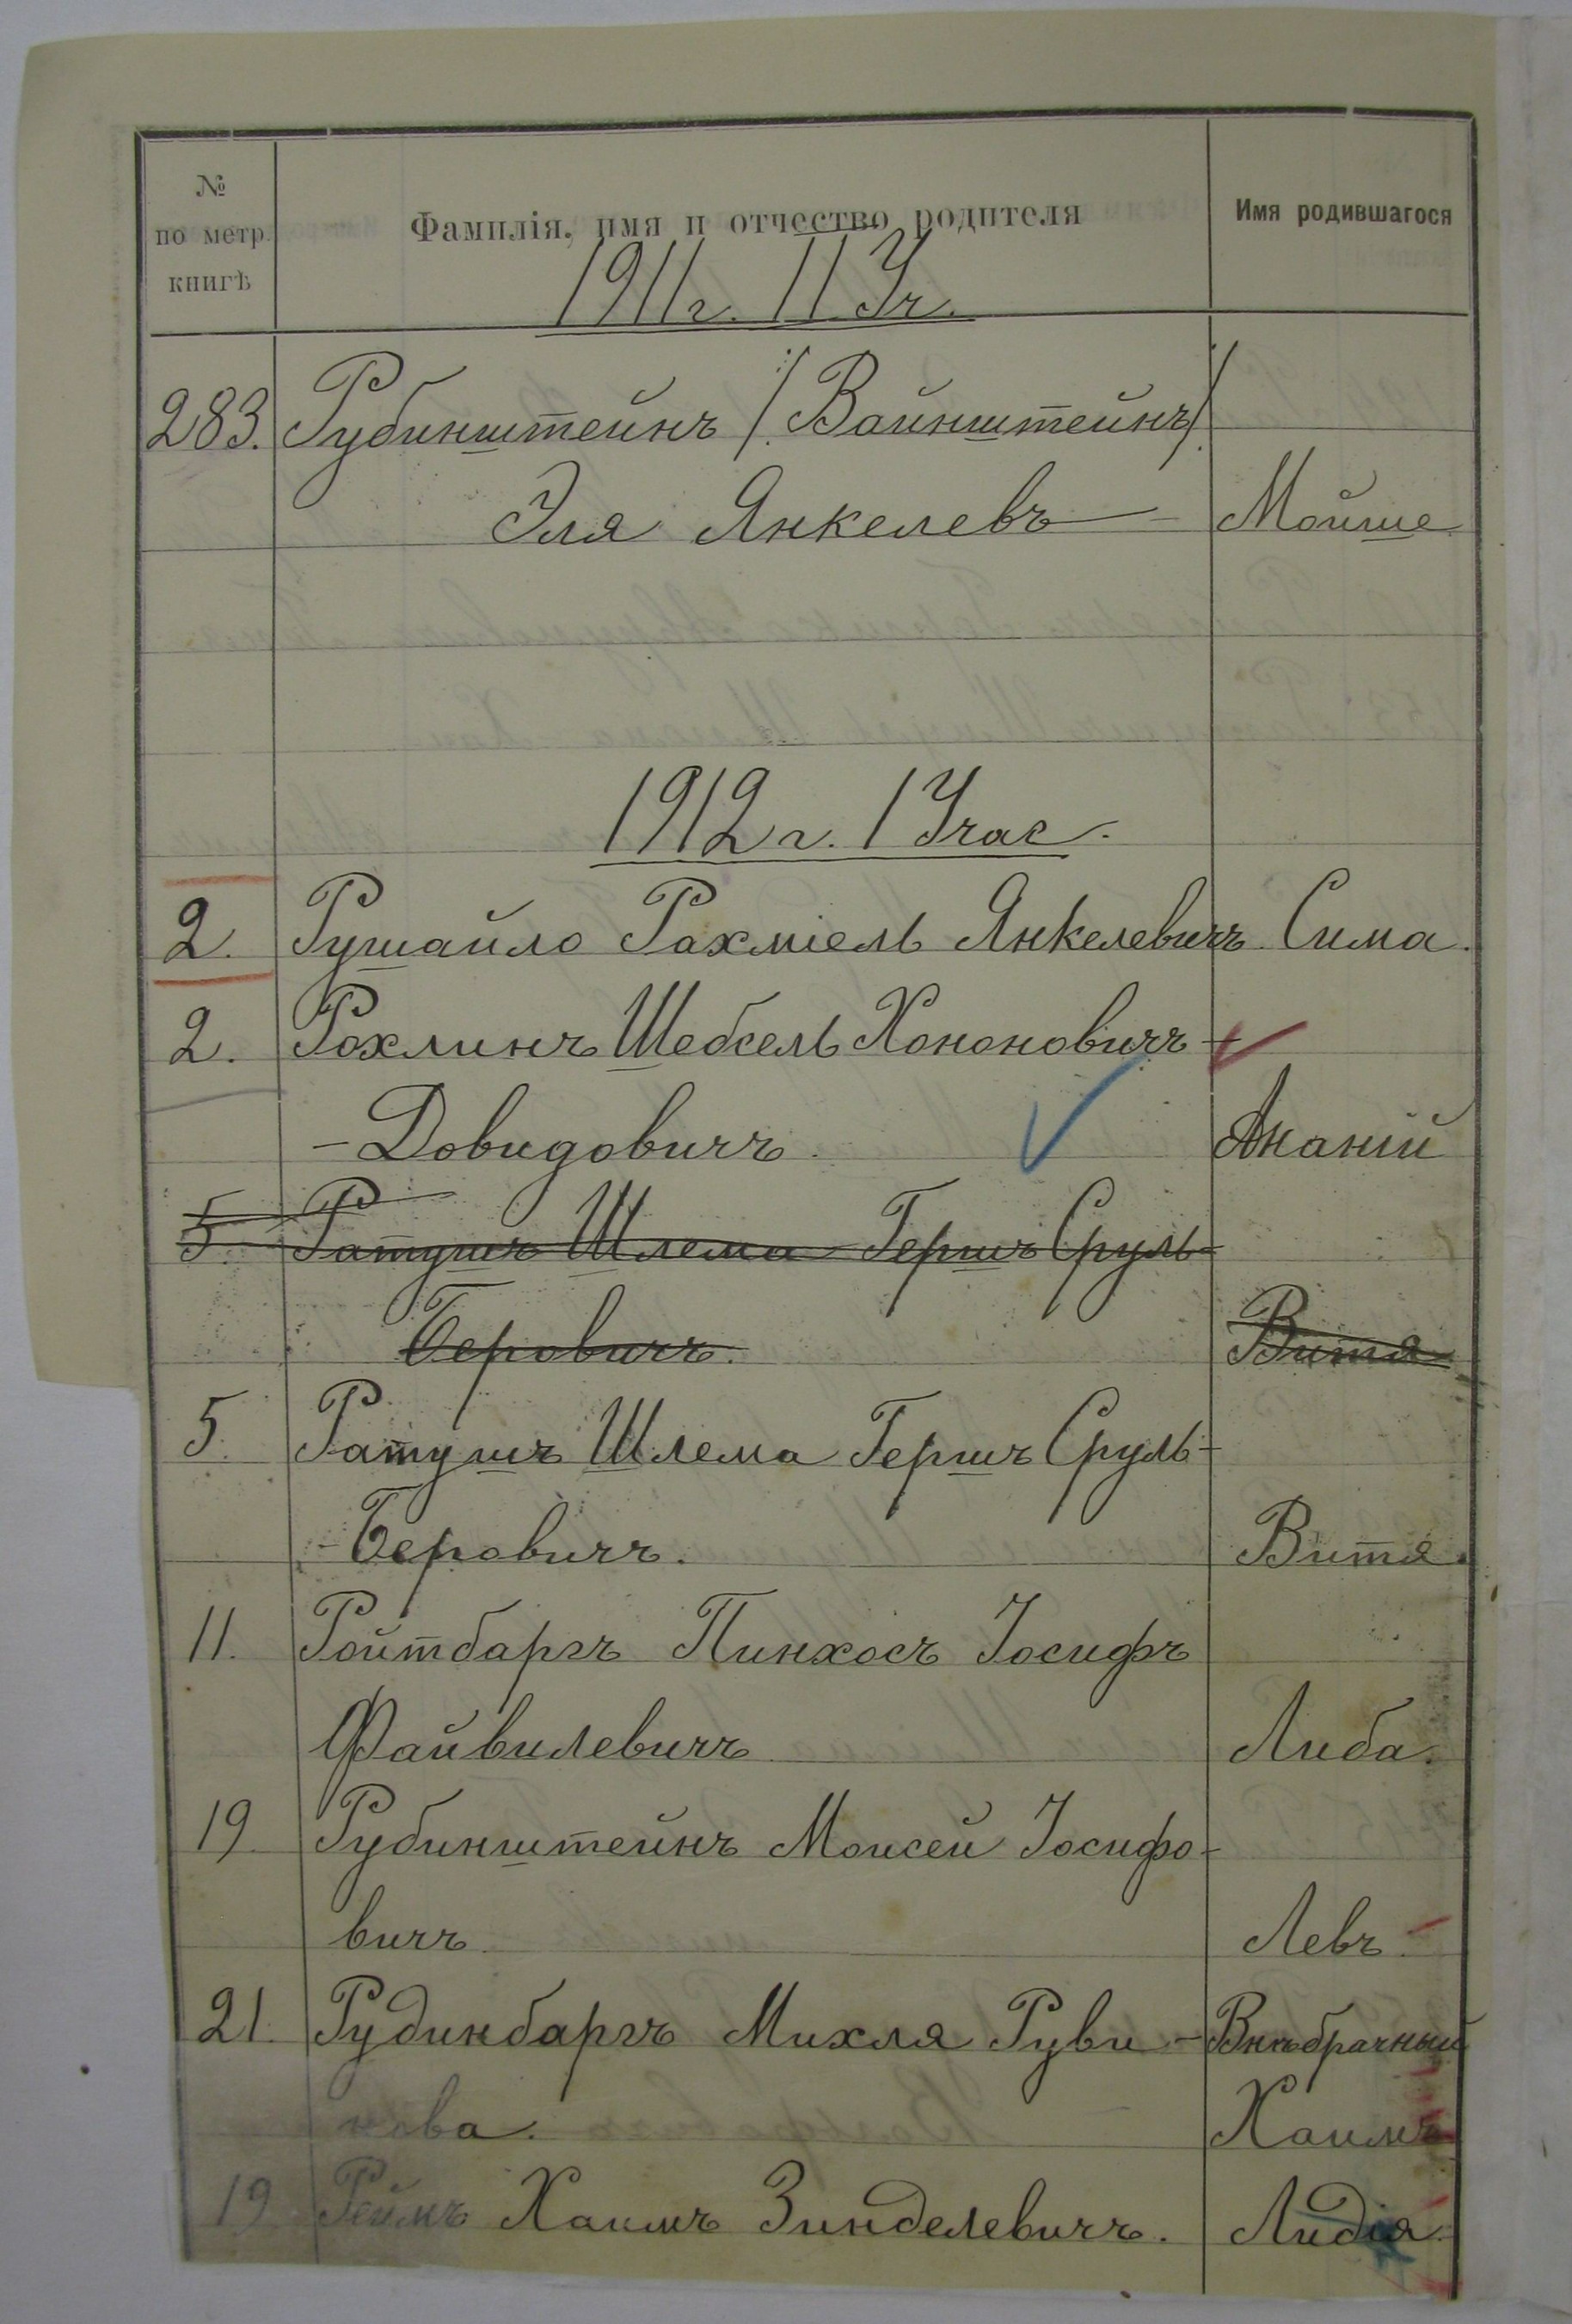 №
по метр.
книгѣ
Фамилія, имя и отчество родителя
Имя родившагося
1911 г. II Уч.
283. Рубинштейнъ /Вайнштейнъ/
Эля Янкелевъ — Мойше
1912 г. I Учас.
2. Рушайло Рахміель Янкелевичъ Сима.
2. Рохлинъ Шебсель Хононовичъ-
-Довидовичъ. Ананій
5 Ратушъ Шлема Гершъ Сруль-
Беровичъ. Витя
5. Ратушъ Шлема Гершъ Сруль-
-Беровичъ. Витя.
11. Ройтбаргъ Пинхосъ Іосифъ
Файвилевичъ Либа.
19 Рубинштейнъ Моисей Іосифо-
вичъ Левъ
21. Рудинбаргъ Михля Руви- Внѣбрачный
нова. Хаимъ
19 Реймъ Хаимъ Зинделевичъ. Лидія.